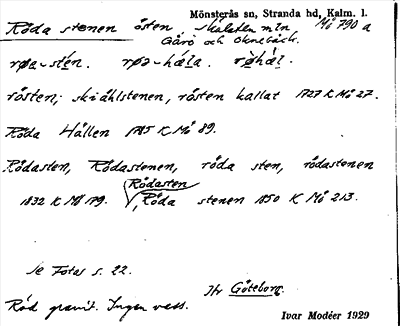 Mönsterås sn, Stranda hd, Kalm. l.
Röda stenen östen skälsten mln Mö 790 a
Gårö och Oknebäck.
røa-stén. røa-hæla. røhæl.
rösten; skiählstenen, rösten kallat 1727 K Mö 27.
Röda Hällen 1785 K Mö 89.
Rödasten, Rödastenen, röda sten, rödastenen
1832 K Mö 179. Rödasten, Röda stenen 1850 K Mö 213.
Se Fotas s. 22.
Jfr Göteborg.
Röd granit. Ingen vass.
Ivar Modéer 1929